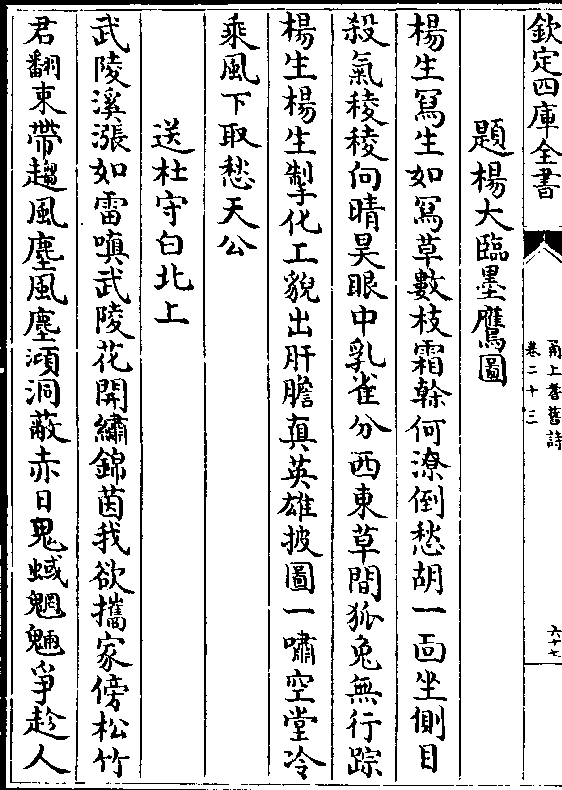 欽定四庫全書
甬上耆舊詩
卷二十三
六十七
題楊大臨墨鷹圖
楊生寫生如寫草數枝霜榦何潦倒愁胡一面坐側目
殺氣稜稜向晴昊眼中乳雀分西東草間狐兔無行踪
楊生楊生掣化工貌出肝膽真英雄披圖一嘯空堂冷
乘風下取愁天公
送杜守白北上
武陵溪漲如雷嗔武陵花開繡錦茵我欲攜家傍松竹
君翻束帶趨風塵風塵澒洞蔽赤日鬼蜮魍魎爭趁人